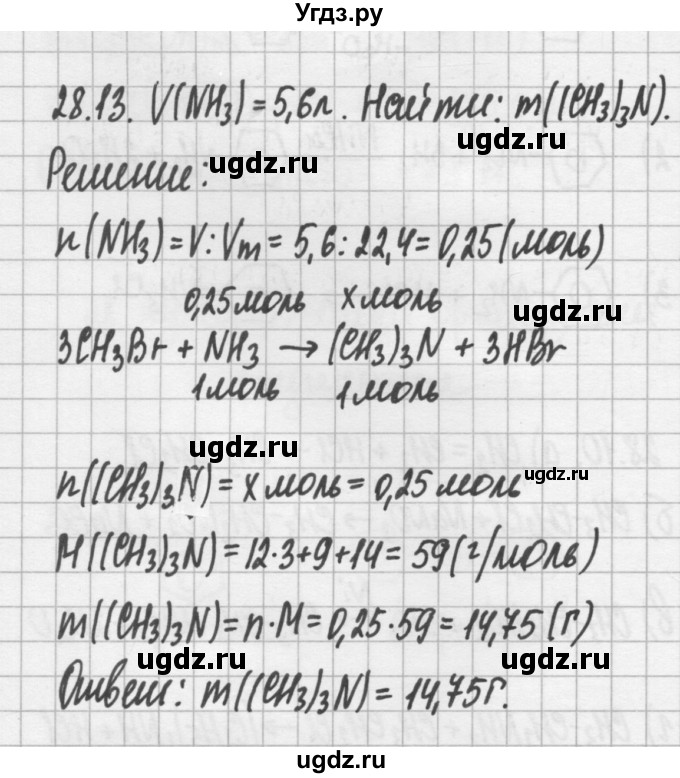 Угдз.ру
28.13. V(NH₃) = 5,6л. Найти: m((CH₃)₃N).
ugdz.ru
Решение: ugdz.ru
n(NH₃) = V : Vm = 5,6 : 22,4 = 0,25 (моль)
0,25 моль x моль ugdz.ru
3CH₃Br + NH₃ → (CH₃)₃N + 3HBr
1 моль 1 моль
ugdz.ru ugdz.ru
n((CH₃)₃N) = x моль = 0,25 моль
M((CH₃)₃N) = 12·3+9+14 = 59 (г/моль)
m((CH₃)₃N) = n·M = 0,25·59 = 14,75 (г)
ugdz.ru ugdz.ru
Ответ: m((CH₃)₃N) = 14,75г.
ugdz.ru